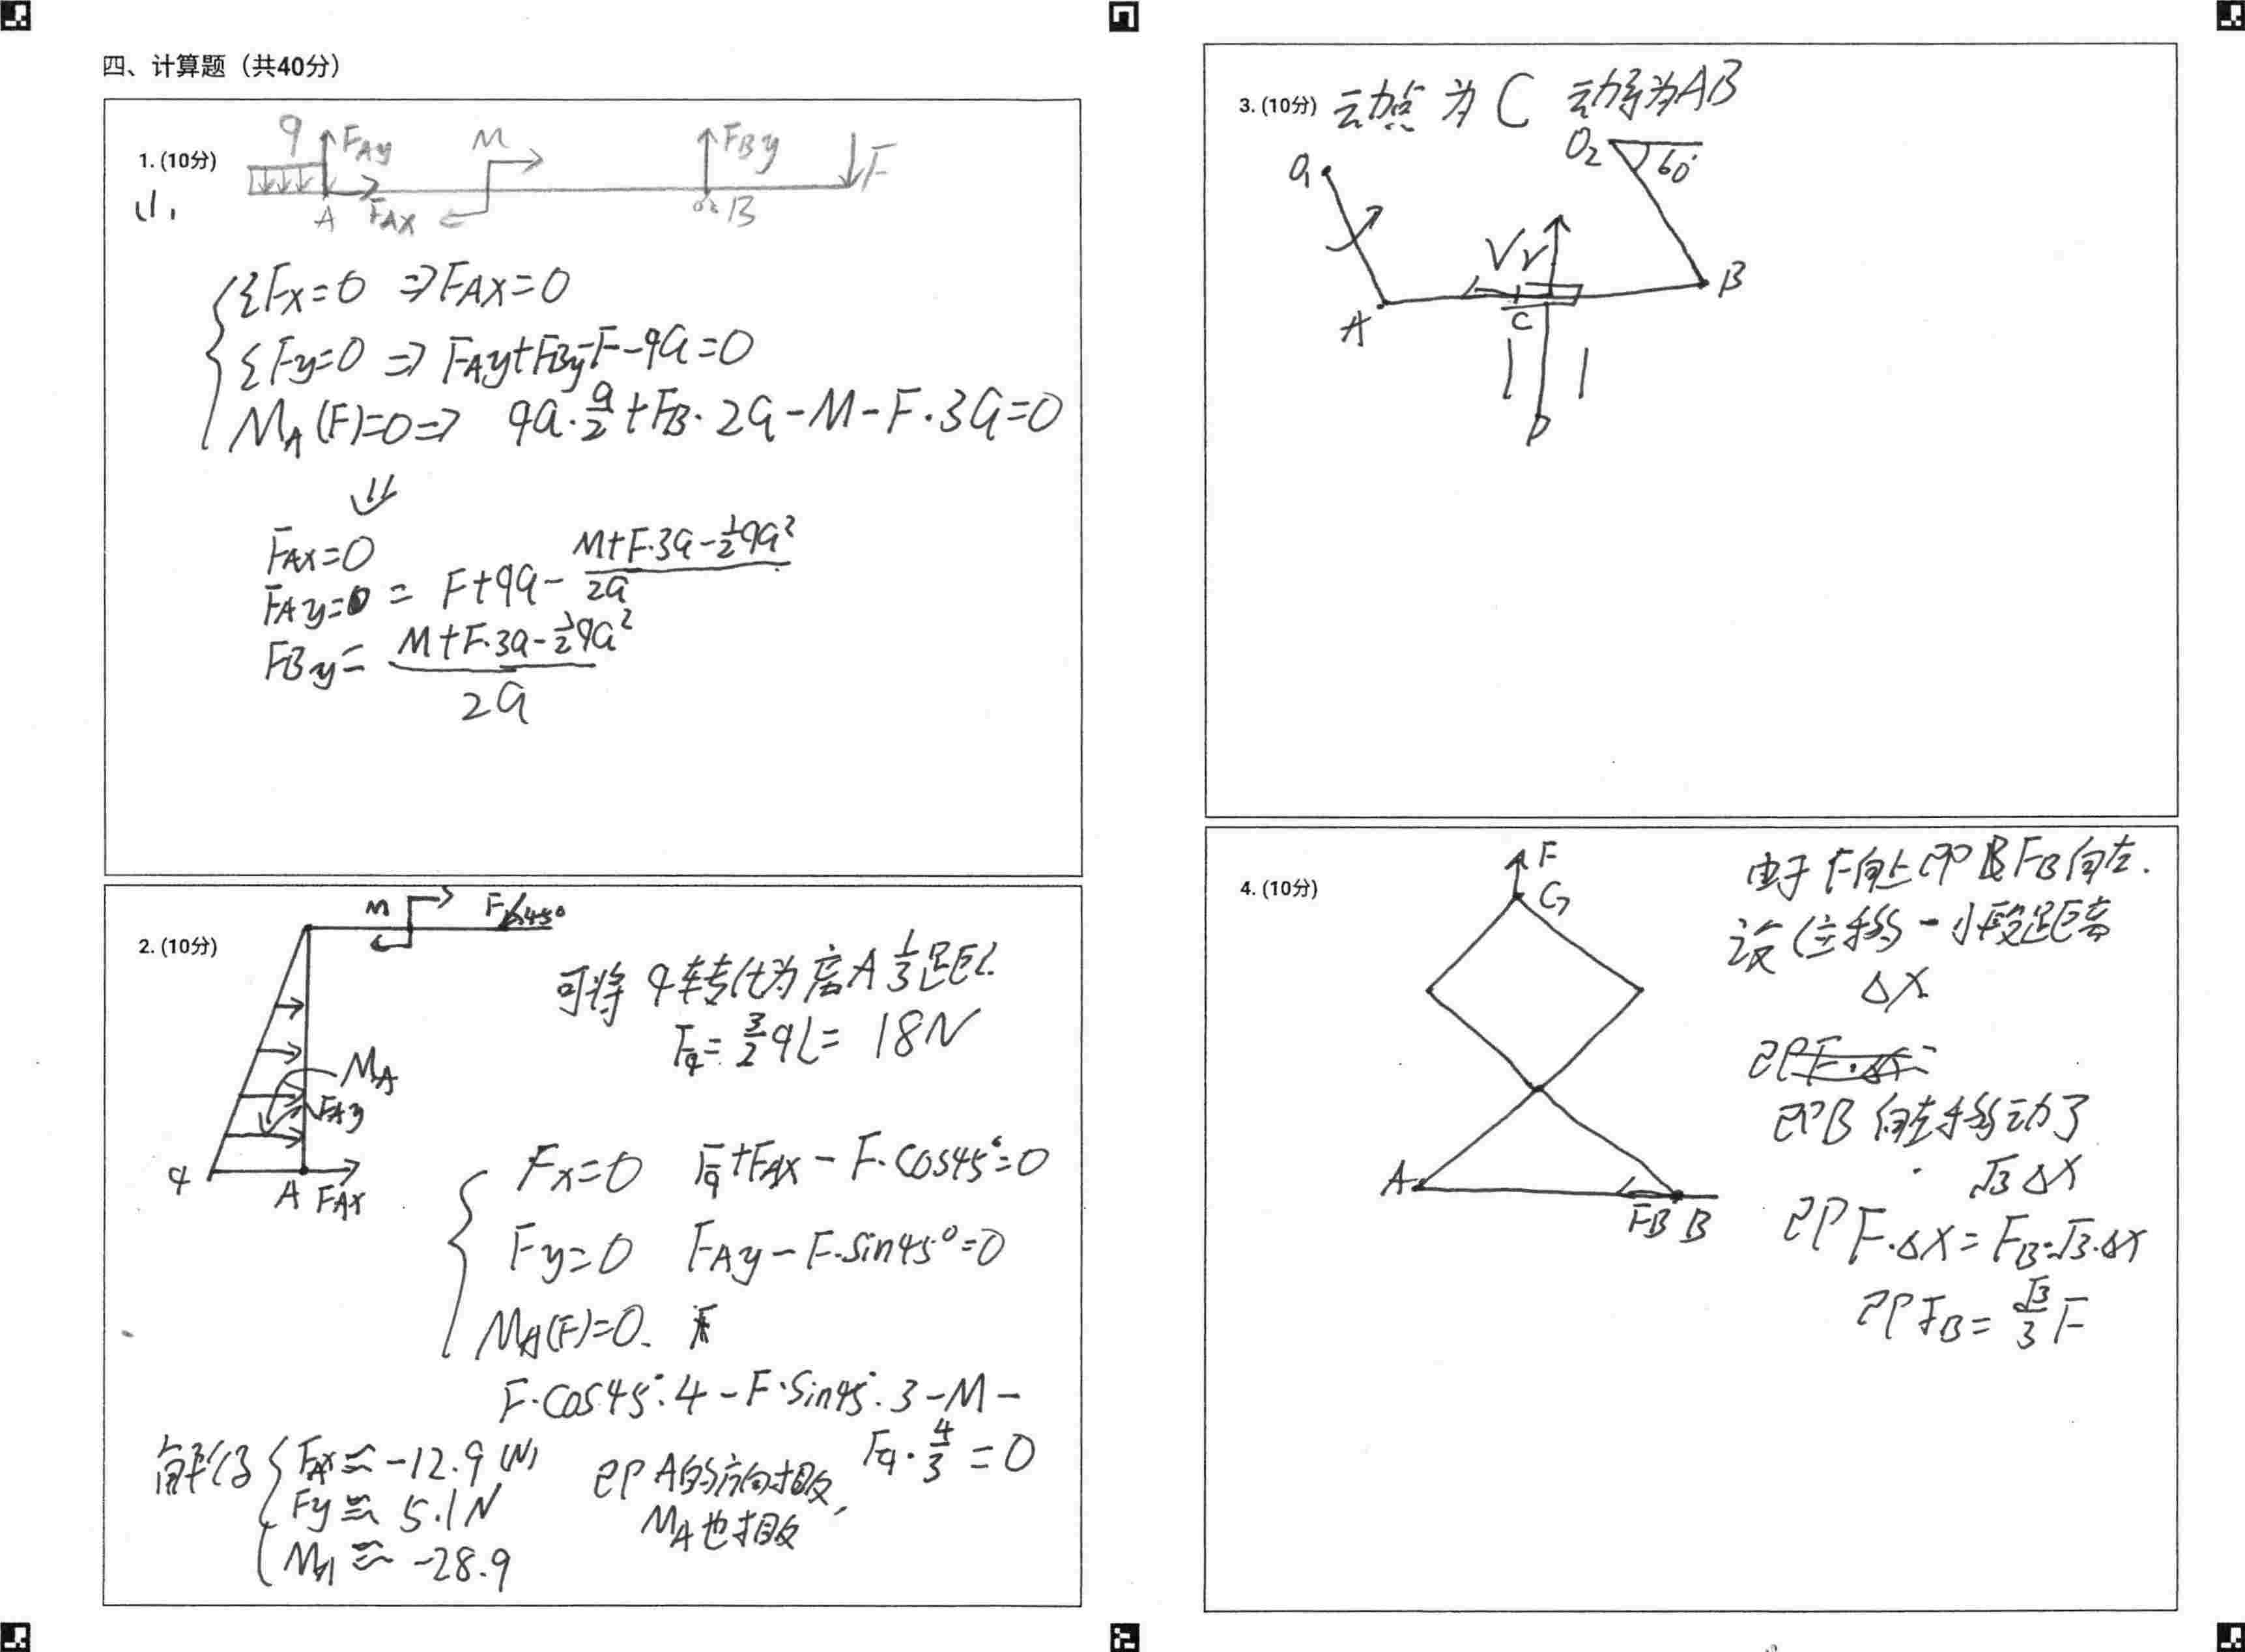 四、计算题（共40分）
1. (10分)
(1.
q FAy M FBy F
A FAX B
ΣFx=0 ⇒FAX=0
ΣFy=0 ⇒ FAy+FBy-F-qa=0
MA(F)=0⇒ qa·a/2+FB·2a-M-F·3a=0
⇓
FAX=0
FAy=0 = F+qa- (M+F·3a-1/2qa²)/2a
FBy= (M+F·3a-1/2qa²)/2a
2. (10分)
M F 45°
MA
FAy
q A FAX
可将q转化为离A 1/3距离
Fq=3/2ql= 18N
Fx=0 Fq+FAX-F·cos45°=0
Fy=0 FAy-F·sin45°=0
MA(F)=0.
F·cos45°·4-F·sin45°·3-M-
Fq·4/3=0
解得 FAX≈-12.9(N)
Fy≈5.1N
MA≈-28.9
即A的方向相反,
MA也相反
3. (10分) 动点为C 动系为AB
O1 O2 60°
Vr
A C B
D
4. (10分)
F
G
A FB B
由于F向上即FB向左.
设位移一小段距离
ΔX
即F·ΔX=
即B向左移动了
√3ΔX
即F·ΔX=FB·√3·ΔX
即FB=√3/3F